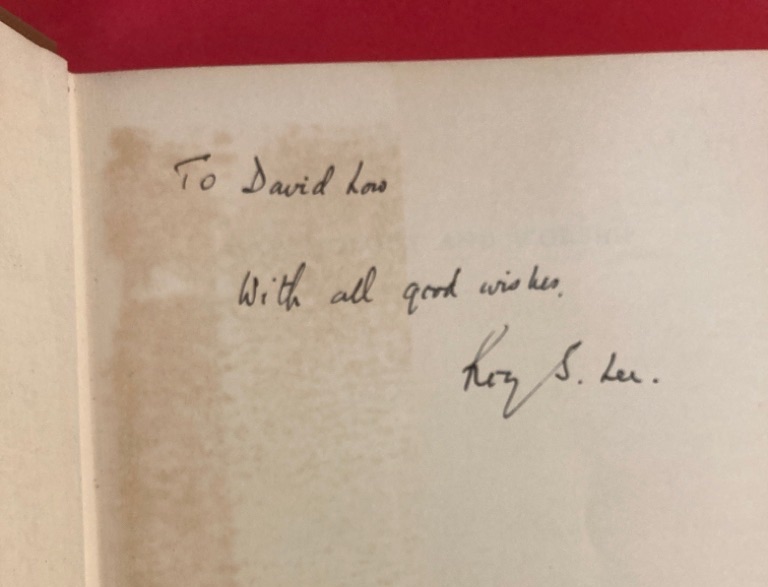 To David Low
With all good wishes.
Roy S. Lee.
AND WORSHIP